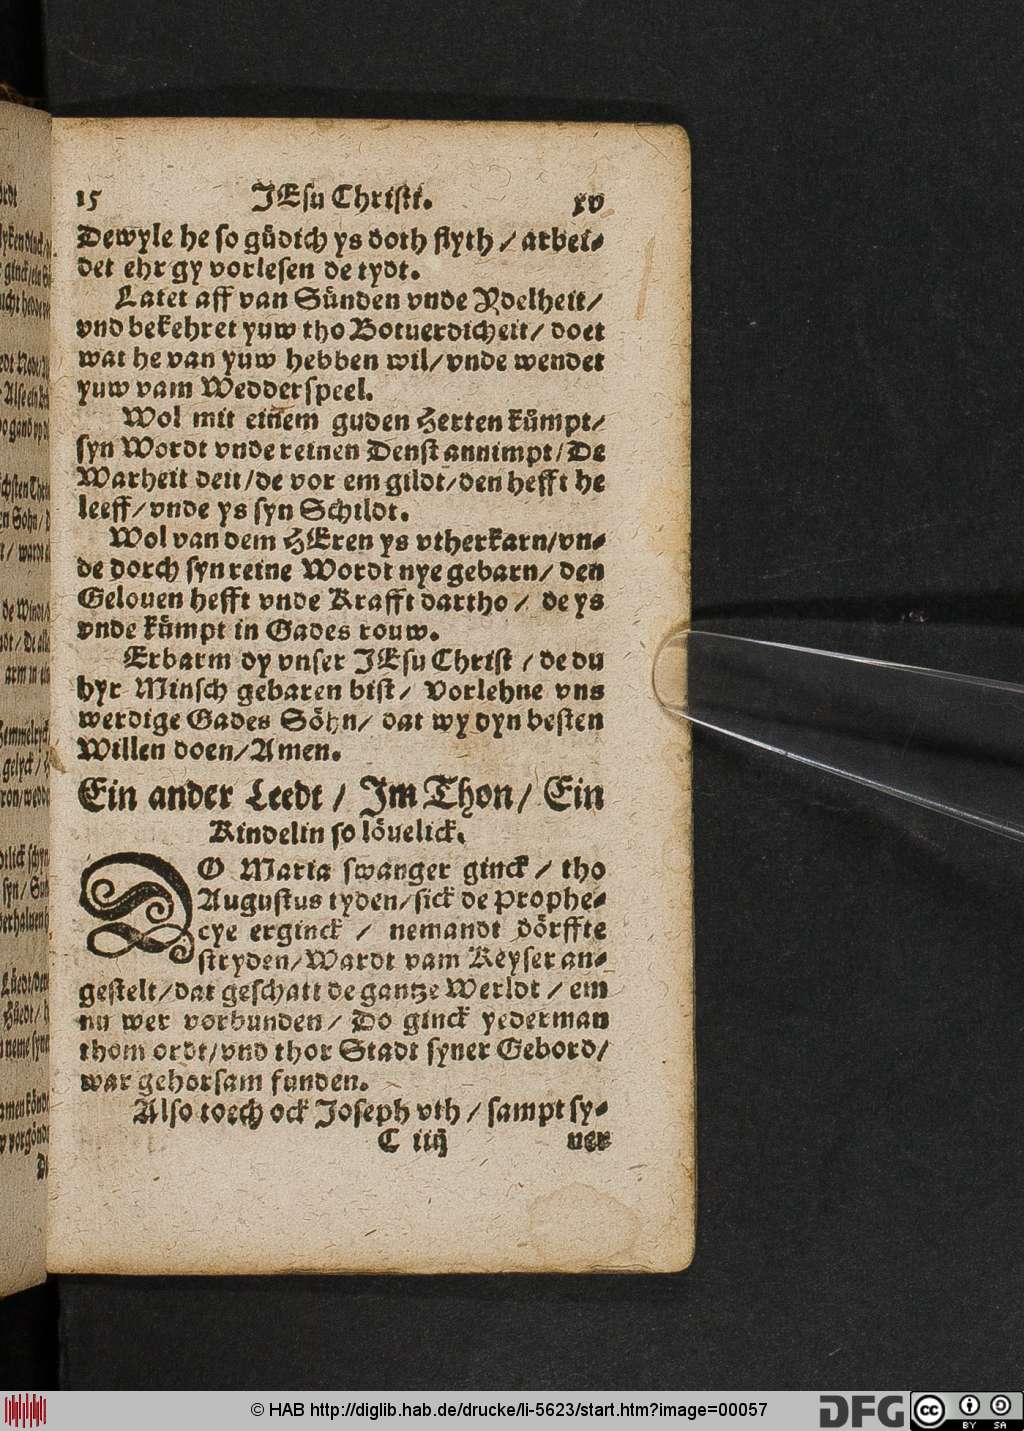 15 JEsu Christi. xv
Dewyle he so güdich ys doth flyth / arbei-
det ehr gy vorlesen de tydt.
Latet aff van Sünden vnde Ydelheit /
vnd bekehret yuw tho Botuerdicheit / doet
wat he van yuw hebben wil / vnde wendet
yuw vam Wedderspeel.
Wol mit einem guden Herten kümpt /
syn Wordt vnde reinen Denst annimpt / De
Warheit deit / de vor em gildt / den hefft he
leeff / vnde ys syn Schildt.
Wol van dem HEren ys vtherkarn / vn-
de dorch syn reine Wordt nye gebarn / den
Gelouen hefft vnde Krafft dartho / de ys
vnde kümpt in Gades rouw.
Erbarm dy vnser JEsu Christ / de du
hyr Minsch gebaren bist / Vorlehne vns
werdige Gades Söhn / dat wy dyn besten
Willen doen / Amen.
Ein ander Leedt / Im Thon / Ein
Kindelin so löuelick.
DO Maria swanger ginck / tho
Augustus tyden / sick de Prophe-
cye erginck / nemandt dörffte
stryden / Wardt vam Keyser an-
gestelt / dat geschatt de gantze Werldt / em
nu wer vorbunden / Do ginck yederman
thom ordt / vnd thor Stadt syner Gebord /
war gehorsam funden.
Also toech ock Joseph vth / sampt sy-
C iiij ner
© HAB http://diglib.hab.de/drucke/li-5623/start.htm?image=00057
DFG
cc BY SA